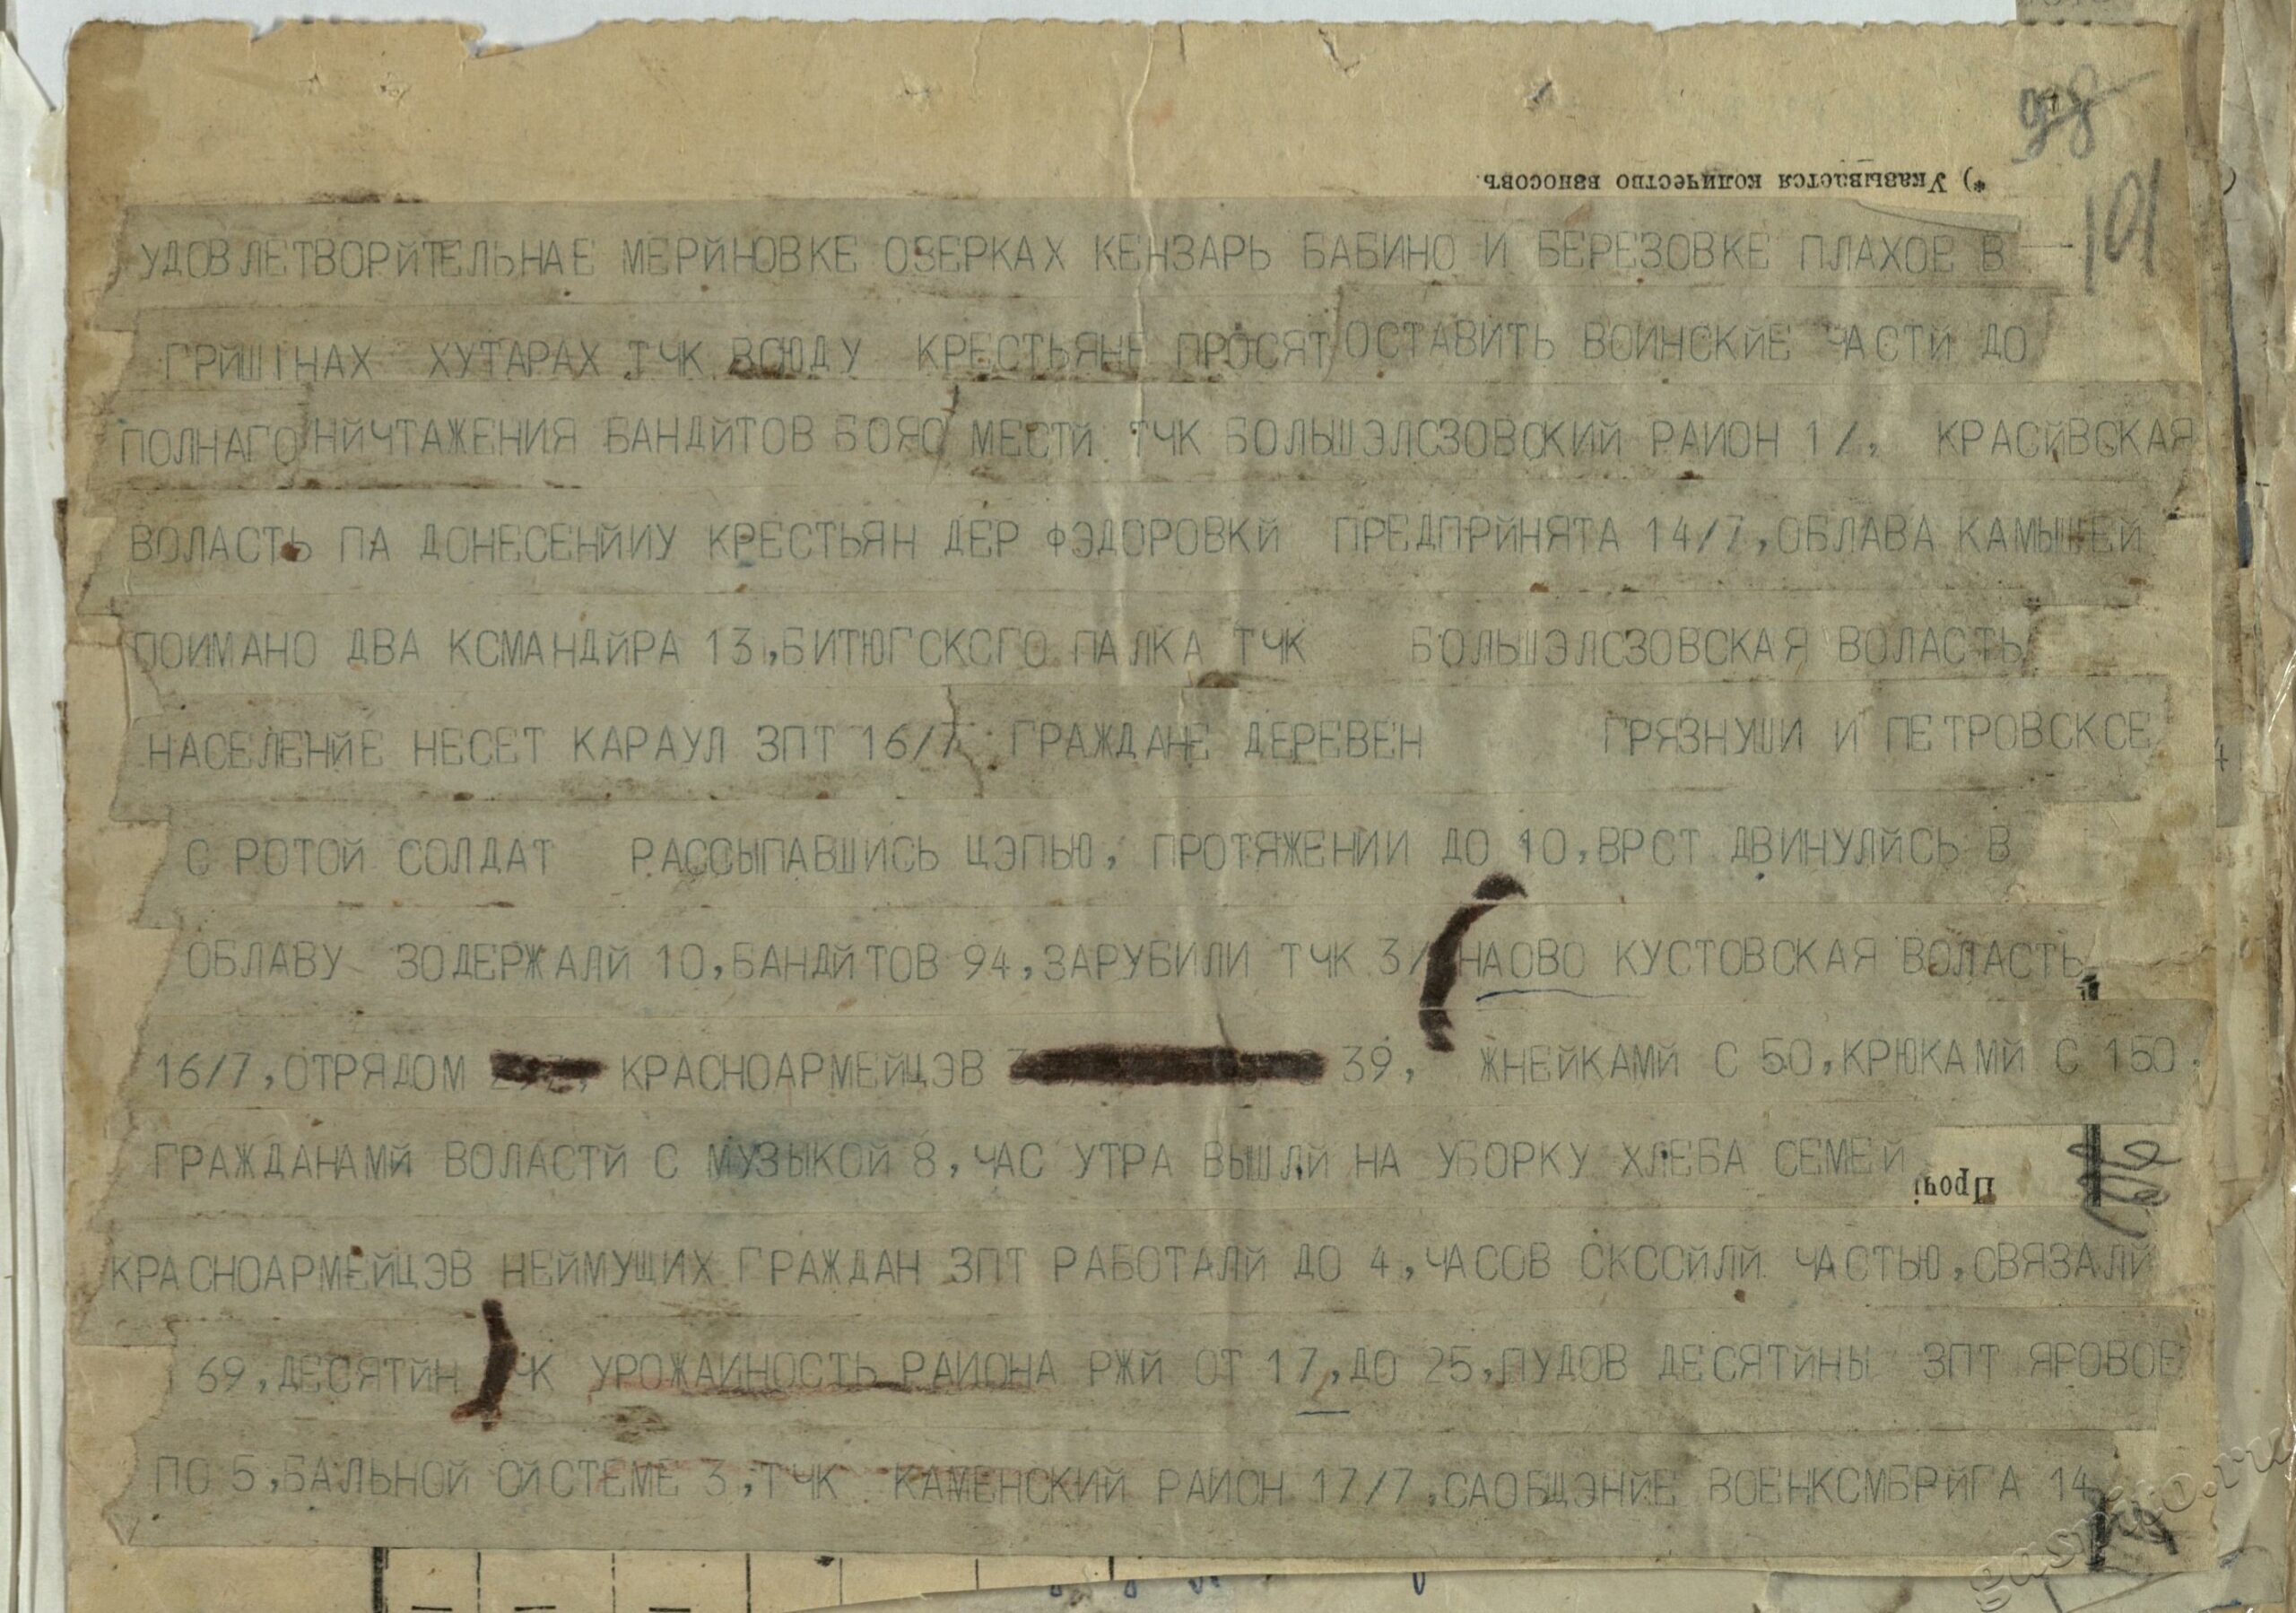 98
*) Указывается количество взносовъ.
101
УДОВЛЕТВОРЙТЕЛЬНАЕ МЕРЙНОВКЕ ОЗЕРКАХ КЕНЗАРЬ БАБИНО И БЕРЕЗОВКЕ ПЛАХОЕ В
ГРЙШІНАХ ХУТАРАХ ТЧК ВСЮДУ КРЕСТЬЯНЕ ПРОСЯТ ОСТАВИТЬ ВОИНСКЙЕ ЧАСТЙ ДО
ПОЛНАГО НЙЧТАЖЕНИЯ БАНДЙТОВ БОЯС МЕСТЙ ТЧК БОЛЫШЭЛСЗОВСКИЙ РАИОН 1/, КРАСЙВСКАЯ
ВОЛАСТЬ ПА ДОНЕСЕНЙИУ КРЕСТЬЯН ДЕР ФЭДОРОВКЙ ПРЕДПРЙНЯТА 14/7,ОБЛАВА КАМЫШЕЙ
ПОИМАНО ДВА КСМАНДЙРА 13,БИТЮГСКСГО ПАЛКА ТЧК БОЛЫШЭЛСЗОВСКАЯ ВОЛАСТЬ
НАСЕЛЕНЙЕ НЕСЕТ КАРАУЛ ЗПТ 16/7 ГРАЖДАНЕ ДЕРЕВЕН ГРЯЗНУШИ И ПЕТРОВСКСЕ
С РОТОЙ СОЛДАТ РАССЫПАВШИСЬ ЦЭПЬЮ, ПРОТЯЖЕНИИ ДО 10,ВРСТ ДВИНУЛЙСЬ В
ОБЛАВУ ЗОДЕРЖАЛЙ 10,БАНДЙТОВ 94,ЗАРУБИЛИ ТЧК 3/ НАОВО КУСТОВСКАЯ ВОЛАСТЬ
16/7,ОТРЯДОМ КРАСНОАРМЕЙЦЭВ 39, ЖНЕЙКАМЙ С 50,КРЮКАМЙ С 150.
ГРАЖДАНАМЙ ВОЛАСТЙ С МУЗЫКОЙ 8,ЧАС УТРА ВЫШЛЙ НА УБОРКУ ХЛЕБА СЕМЕЙ
Прочі
КРАСНОАРМЕЙЦЭВ НЕЙМУЩИХ ГРАЖДАН ЗПТ РАБОТАЛЙ ДО 4,ЧАСОВ СКССЙЛЙ ЧАСТЬЮ,СВЯЗАЛЙ
69,ДЕСЯТЙН ЧК УРОЖАИНОСТЬ РАИОНА РЖЙ ОТ 17,ДО 25,ПУДОВ ДЕСЯТЙНЫ ЗПТ ЯРОВОЕ
ПО 5,БАЛЬНОЙ СЙСТЕМЕ 3,ТЧК КАМЕНСКИЙ РАИОН 17/7,САОБЩЭНЙЕ ВОЕНКСМБРЙГА 14
gaspito.ru